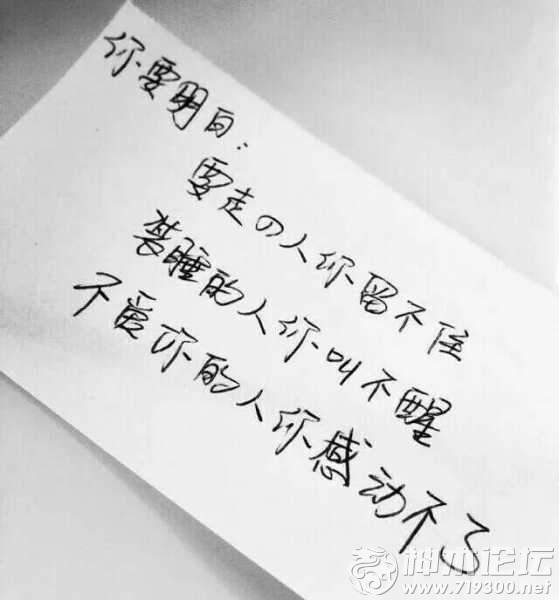 你要明白：
要走の人你留不住
装睡的人你叫不醒
不爱你的人你感动不了
神木论坛
www.719300.net